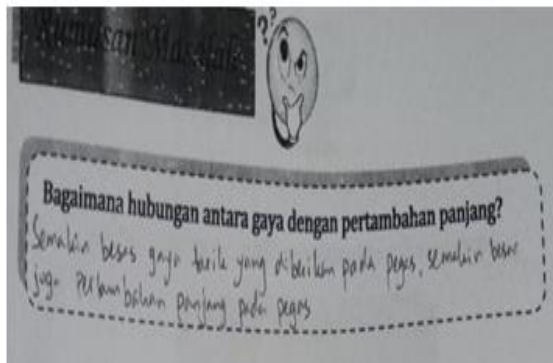 ??
Rumusan Masalah
Bagaimana hubungan antara gaya dengan pertambahan panjang?
Semakin besar gaya tarik yang diberikan pada pegas, semakin besar
juga pertambahan panjang pada pegas